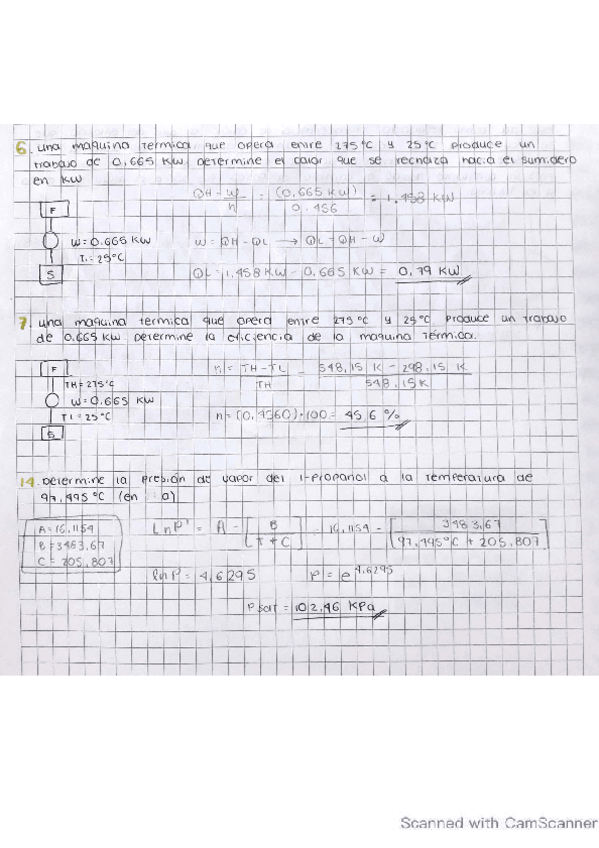 6. una maquina termica que opera entre 275°C y 25°C produce un
trabajo de 0.665 KW determine el calor que se rechaza hacia el sumidero
en KW
F
QH = W/n = (0.665 KW)/0.456 = 1.458 KW
W = 0.665 KW
W = QH - QL → QL = QH - W
TL = 25°C
S
QL = 1.458 KW - 0.665 KW = 0.79 KW
7. una maquina termica que opera entre 275°C y 25°C produce un trabajo
de 0.665 KW Determine la eficiencia de la maquina Térmica.
F
n = TH - TL / TH = 548,15 K - 298,15 K / 548,15 K
TH = 275°C
W = 0.665 KW
TL = 25°C
n = (0,4560)·100 = 45,6 %
S
14. Determine la presión de vapor del 1-propanol a la temperatura de
97,495°C (en a)
A = 16,1154
B = 3483,67
C = 205,807
Ln P' = A - [B / T + C] = 16,1154 - [3483,67 / 97,495°C + 205,807]
ln P = 4,6295
P = e^4,6295
Psat = 102,46 KPa
Scanned with CamScanner